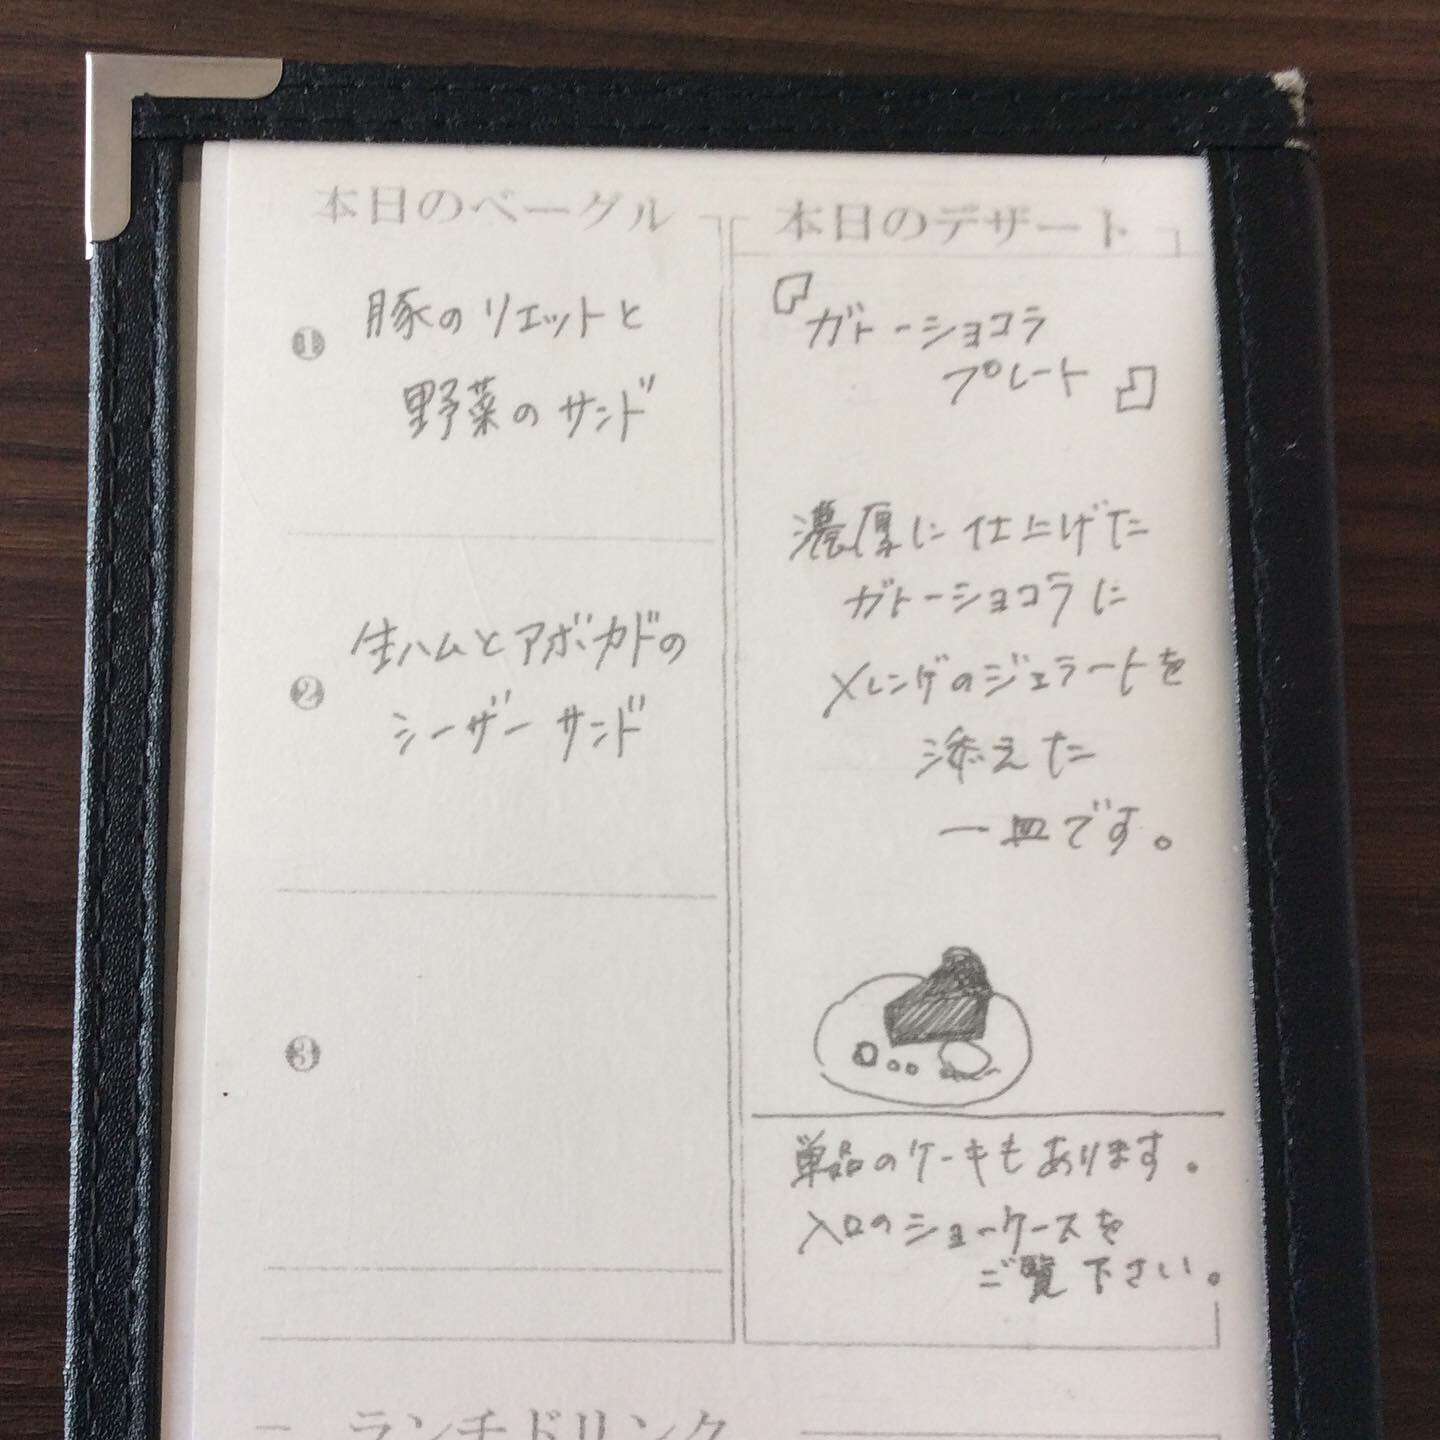 本日のベーグル
❶ 豚のリエットと
野菜のサンド
❷ 生ハムとアボカドの
シーザーサンド
❸
本日のデザート
『ガトーショコラ
プレート』
濃厚に仕上げた
ガトーショコラに
メレンゲのジェラートを
添えた
一皿です。
単品のケーキもあります。
入口のショーケースを
ご覧下さい。
ランチドリンク